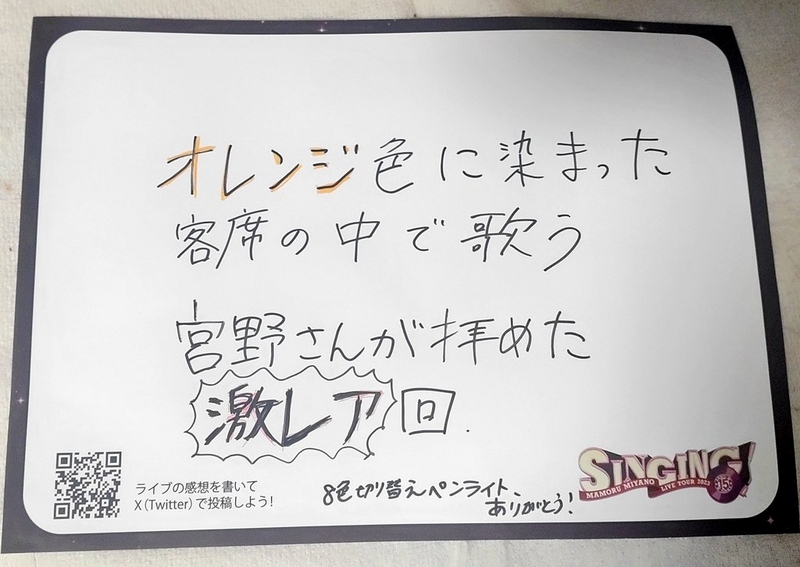 オレンジ色に染まった
客席の中で歌う
宮野さんが拝めた
激レア回.
8色切り替えペンライト、
ありがとう!
ライブの感想を書いて
X(Twitter)で投稿しよう!
SINGING!
MAMORU MIYANO LIVE TOUR 2023
15